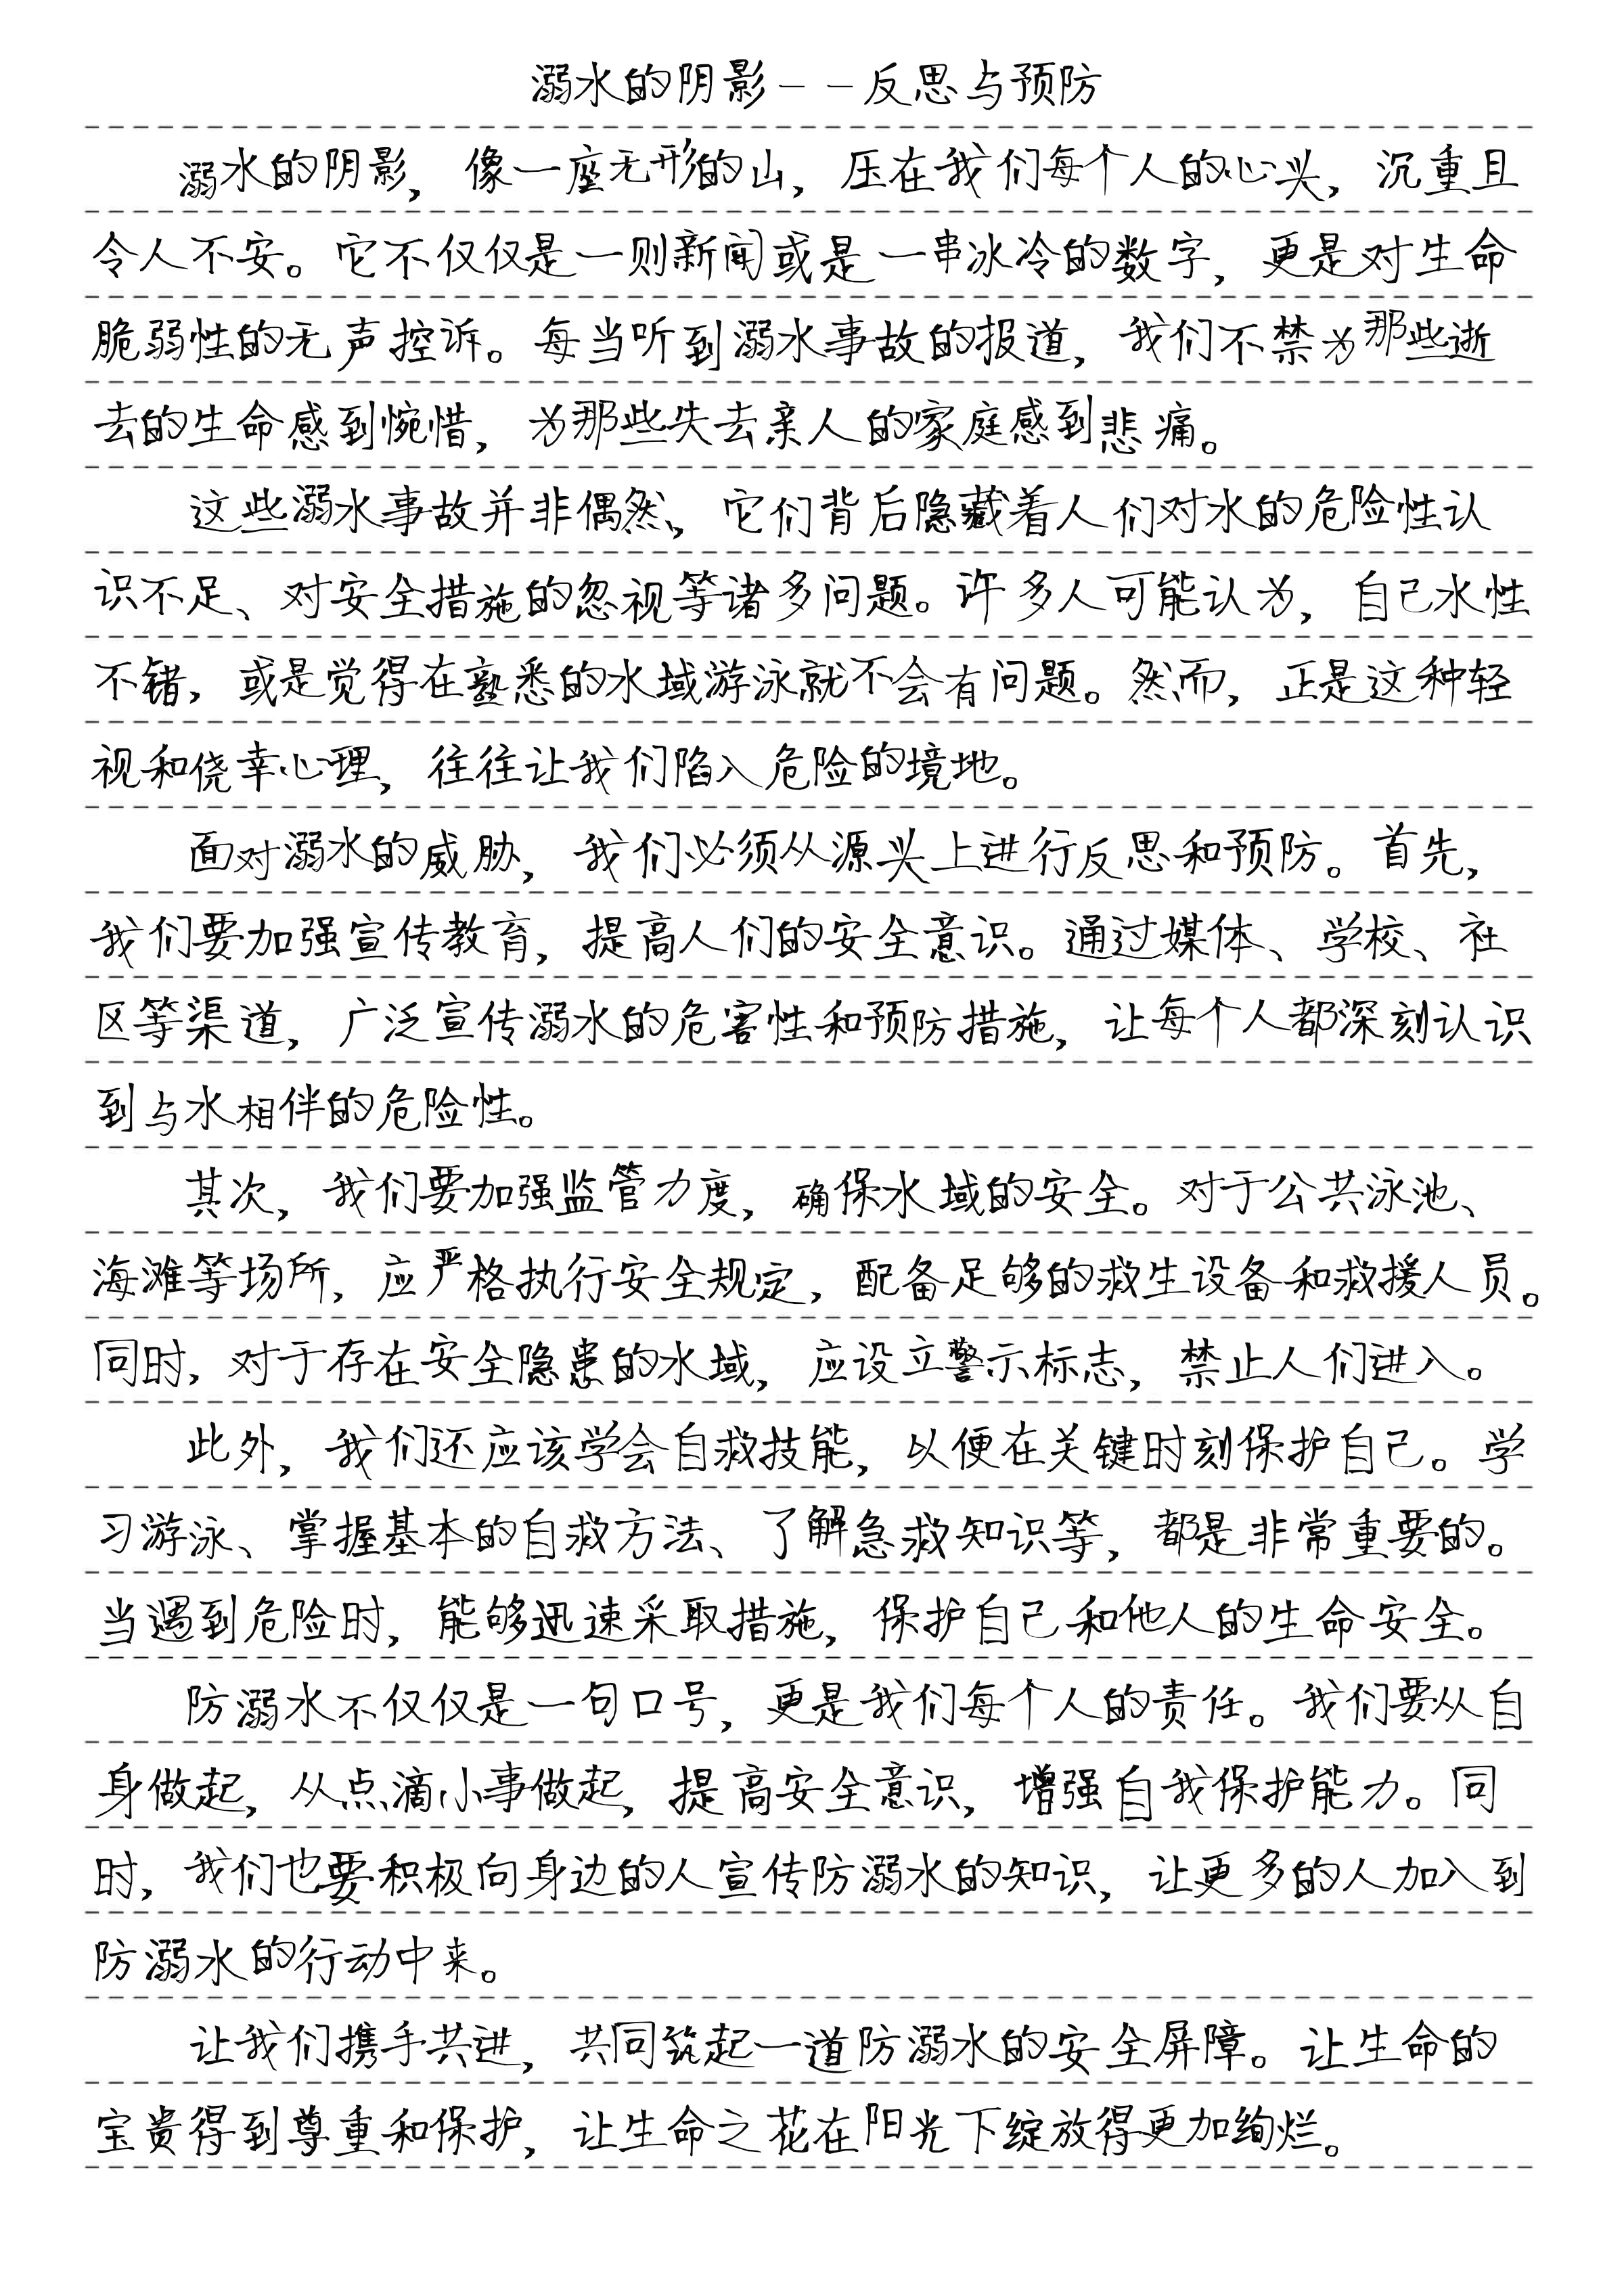 溺水的阴影--反思与预防
溺水的阴影，像一座无形的山，压在我们每个人的心头，沉重且
令人不安。它不仅仅是一则新闻或是一串冰冷的数字，更是对生命
脆弱性的无声控诉。每当听到溺水事故的报道，我们不禁为那些逝
去的生命感到惋惜，为那些失去亲人的家庭感到悲痛。
这些溺水事故并非偶然，它们背后隐藏着人们对水的危险性认
识不足、对安全措施的忽视等诸多问题。许多人可能认为，自己水性
不错，或是觉得在熟悉的水域游泳就不会有问题。然而，正是这种轻
视和侥幸心理，往往让我们陷入危险的境地。
面对溺水的威胁，我们必须从源头上进行反思和预防。首先，
我们要加强宣传教育，提高人们的安全意识。通过媒体、学校、社
区等渠道，广泛宣传溺水的危害性和预防措施，让每个人都深刻认识
到与水相伴的危险性。
其次，我们要加强监管力度，确保水域的安全。对于公共泳池、
海滩等场所，应严格执行安全规定，配备足够的救生设备和救援人员。
同时，对于存在安全隐患的水域，应设立警示标志，禁止人们进入。
此外，我们还应该学会自救技能，以便在关键时刻保护自己。学
习游泳、掌握基本的自救方法、了解急救知识等，都是非常重要的。
当遇到危险时，能够迅速采取措施，保护自己和他人的生命安全。
防溺水不仅仅是一句口号，更是我们每个人的责任。我们要从自
身做起，从点滴小事做起，提高安全意识，增强自我保护能力。同
时，我们也要积极向身边的人宣传防溺水的知识，让更多的人加入到
防溺水的行动中来。
让我们携手共进，共同筑起一道防溺水的安全屏障。让生命的
宝贵得到尊重和保护，让生命之花在阳光下绽放得更加绚烂。